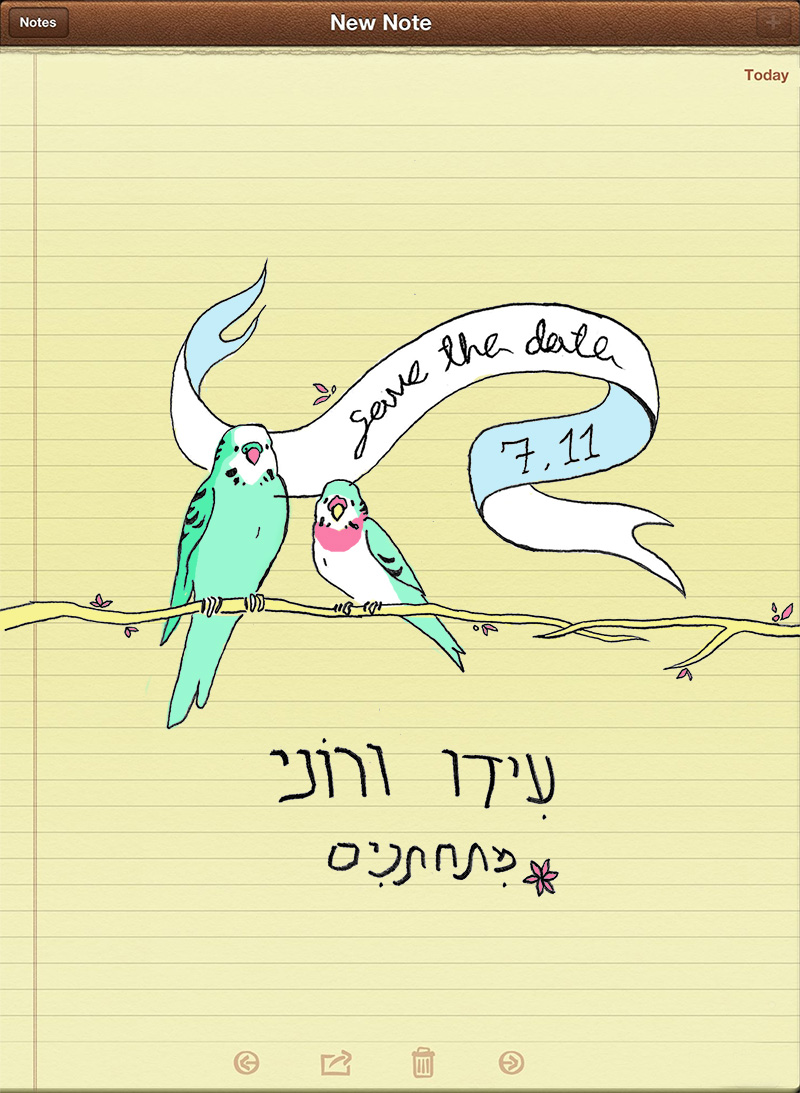 Notes
New Note
Today
save the date
7.11
עִידו ורוֹני
מִתחתנִים